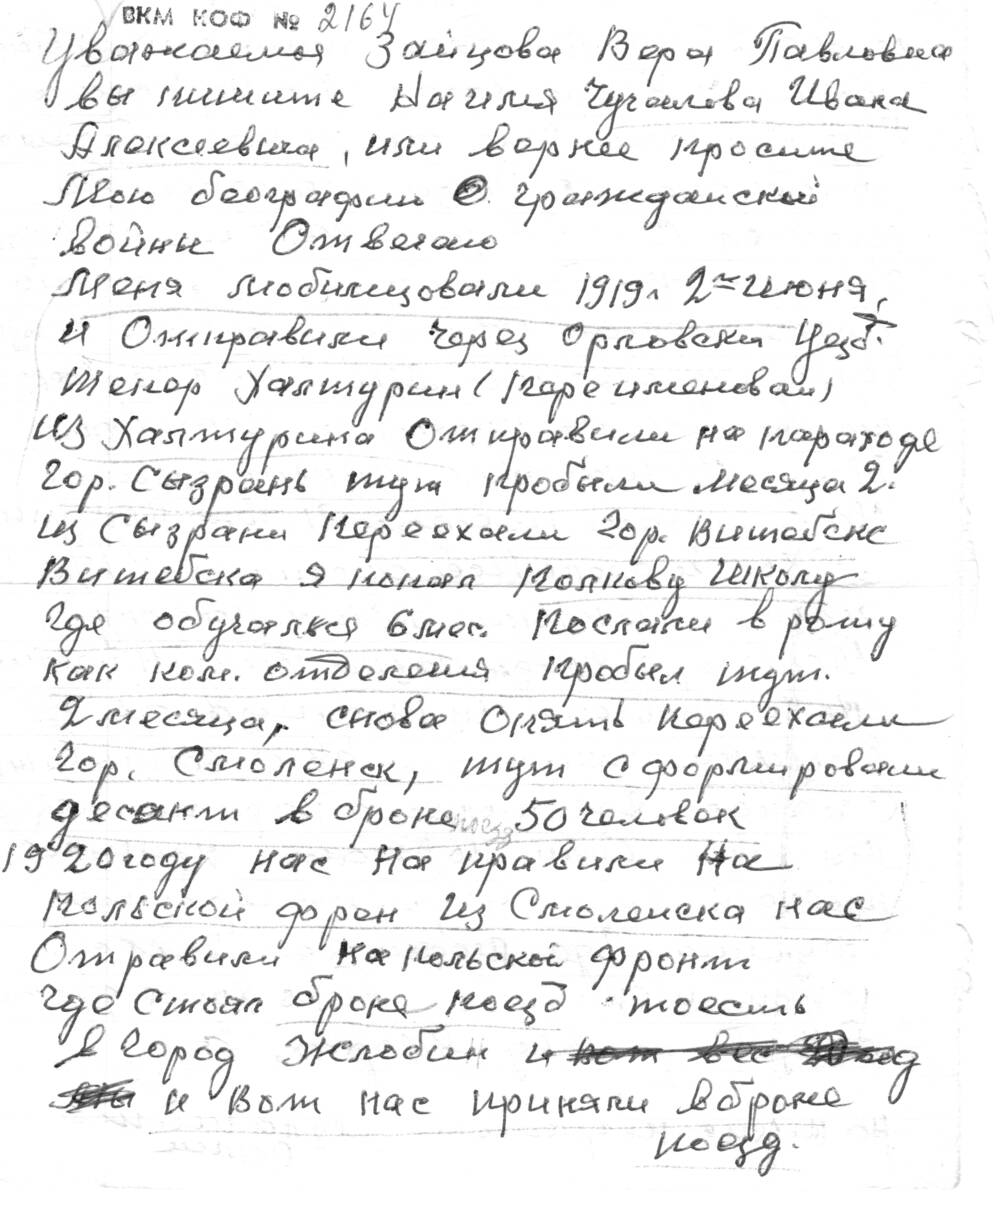 ВКМ КОФ № 2164
Уважаемая Зайцова Вера Павловна
вы пишите Чучалова Ивана
Алексеевича, или вернее просите
Мою биографии О гражданской
войны Отвечаю
Меня мобилизовали 1919г 2го июня,
и Отправили через Орловски Уезд.
Тепер Халтурин (переименован)
из Халтурина Отправили на параходе
Гор. Сызрань тут пробыли месяца 2.
из Сызрани Переехали Гор. Витебске
Витебска я попал Полкову школу
где обучался 6 мес. Послали в роту
как ком. отделения пробыл тут.
2 месяца, снова Опять переехали
Гор. Смоленск, тут сформировали
десант в броне поезд 50 человек
1920 году нас На правили На
Польской фрон из Смоленска нас
Отравили на польской фронт
где Стоял броне поезд тоесть
в город Жлобин и
и Вот нас приняли в броне
поезд.